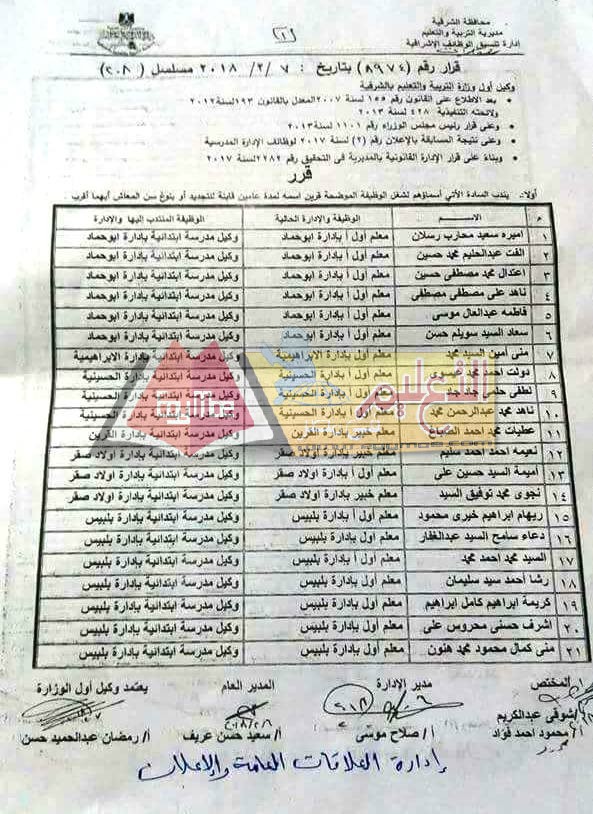 محافظة الشرقية
مديرية التربية والتعليم
إدارة تنسيق الوظائف الإشرافية
(١)
قرار رقم (٨٩٧٤) بتاريخ : ٧ /٢/ ٢٠١٨ مسلسل (٢٠٨)
وكيل أول وزارة التربية والتعليم بالشرقية
• بعد الاطلاع على القانون رقم ١٥٥ لسنة ٢٠٠٧المعدل بالقانون ٩٣لسنة٢٠١٢
ولائحته التنفيذية ٤٢٨ لسنة ٢٠١٣
• وعلى قرار رئيس مجلس الوزراء رقم ١١٠١ لسنة٢٠١٣
• وعلى نتيجة المسابقة بالإعلان رقم (٢) لسنة ٢٠١٧ لوظائف الإدارة المدرسية
• وبناءً على قرار الإدارة القانونية بالمديرية فى التحقيق رقم ٢٢٨٢لسنة ٢٠١٧
قرر
أولا:- يندب السادة الأتي أسماؤهم لشغل الوظيفة الموضحة قرين اسمه لمدة عامين قابلة للتجديد أو بلوغ سن المعاش أيهما أقرب
م الاسم الوظيفة والإدارة الحالية الوظيفة المنتدب إليها والإدارة
١ اميره سعيد محارب رسلان معلم أول أ بإدارة ابوحماد وكيل مدرسة ابتدائية بإدارة ابوحماد
٢ الفت عبدالحليم محمد حسين معلم أول أ بإدارة ابوحماد وكيل مدرسة ابتدائية بإدارة ابوحماد
٣ اعتدال محمد مصطفى حسين معلم أول أ بإدارة ابوحماد وكيل مدرسة ابتدائية بإدارة ابوحماد
٤ ناهد على مصطفى مصطفى معلم أول أ بإدارة ابوحماد وكيل مدرسة ابتدائية بإدارة ابوحماد
٥ فاطمه عبدالعال موسى معلم أول أ بإدارة ابوحماد وكيل مدرسة ابتدائية بإدارة ابوحماد
٦ سعاد السيد سويلم حسن معلم أول أ بإدارة ابوحماد وكيل مدرسة ابتدائية بإدارة ابوحماد
٧ منى أمين السيد محمد معلم أول أ بإدارة الابراهيمية وكيل مدرسة ابتدائية بإدارة الابراهيمية
٨ دولت احمد محمد عيسوى معلم أول أ بإدارة الحسينية وكيل مدرسة ابتدائية بإدارة الحسينية
٩ لطفى حلمى جاد جاد معلم أول أ بإدارة الحسينية وكيل مدرسة ابتدائية بإدارة الحسينية
١٠ ناهد محمد عبدالرحمن محمد معلم أول أ بإدارة الحسينية وكيل مدرسة ابتدائية بإدارة الحسينية
١١ عطيات محمد احمد الصباغ معلم خبير بإدارة القرين وكيل مدرسة ابتدائية بإدارة القرين
١٢ نعيمه احمد احمد سليم معلم خبير بإدارة اولاد صقر وكيل مدرسة ابتدائية بإدارة اولاد صقر
١٣ أميمة السيد حسين على معلم أول أ بإدارة اولاد صقر وكيل مدرسة ابتدائية بإدارة اولاد صقر
١٤ نجوى محمد توفيق السيد معلم خبير بإدارة اولاد صقر وكيل مدرسة ابتدائية بإدارة اولاد صقر
١٥ ريهام ابراهيم خيرى محمود معلم أول أ بإدارة بلبيس وكيل مدرسة ابتدائية بإدارة بلبيس
١٦ دعاء سامح السيد عبدالغفار معلم أول أ بإدارة بلبيس وكيل مدرسة ابتدائية بإدارة بلبيس
١٧ السيد محمد احمد محمد معلم أول أ بإدارة بلبيس وكيل مدرسة ابتدائية بإدارة بلبيس
١٨ رشا أحمد سيد سليمان معلم أول بإدارة بلبيس وكيل مدرسة ابتدائية بإدارة بلبيس
١٩ كريمة ابراهيم كامل ابراهيم معلم أول بإدارة بلبيس وكيل مدرسة ابتدائية بإدارة بلبيس
٢٠ اشرف حسنى محروس على معلم أول بإدارة بلبيس وكيل مدرسة ابتدائية بإدارة بلبيس
٢١ منى كمال محمود محمد هنون معلم أول بإدارة بلبيس وكيل مدرسة ابتدائية بإدارة بلبيس
المختص مدير الإدارة المدير العام يعتمد وكيل أول الوزارة
أ/شوقى عبدالكريم
أ/ محمود احمد فؤاد أ/ صلاح موسى أ/ سعيد حسن عريف أ/ رمضان عبدالحميد حسن
إدارة العلاقات العامة والإعلان